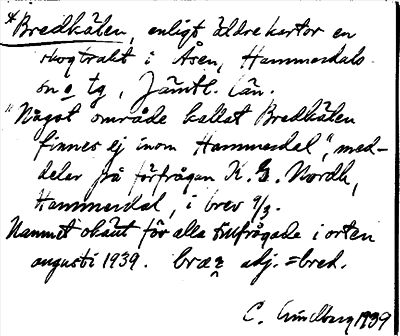 *Bredkälen, enligt äldre kartor en
skogtrakt i Åsen, Hammerdals
sn o tg, Jämtl. län.
"Något område kallat Bredkälen
finnes ej inom Hammerdal", med-
delar på förfrågan K. G. Nordh,
Hammerdal, i brev 9/3.
Namnet okänt för alla tillfrågade i orten
augusti 1939. bræ adj. = bred.
C. Lindberg 1939